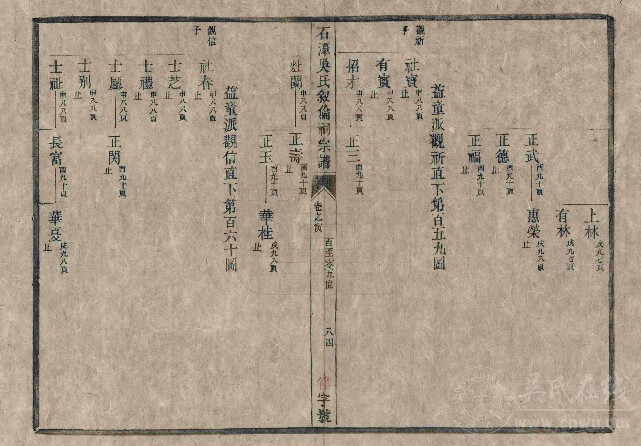 上林 戌九七頁
有林 戌九七頁 止
正武 酉九十頁
惠榮 戌九八頁 止
正德 酉九十頁 止
正福 酉九十頁 止
益童派觀祈直下第百五九圖
觀新子
社寳 申八八頁 止
有寳 申八八頁 止
招才 申八八頁
正三 酉九十頁 止
石潭吳氏敘倫祠宗譜
卷之
八四
字號
灶蘭 申八八頁
正斋 酉九十頁 止
正玉 酉九十頁
華桂 戌九八頁 止
益童派觀信直下第百六十圖
觀信子
社春 申八八頁 止
士芝 申八八頁 止
士禮 申八八頁 止
士 申八八頁
正閔 酉九十頁 止
士别 申八八頁 止
士祉 申八八頁
長富 酉九十頁
華夏 戌九八頁 止
吴氏在线